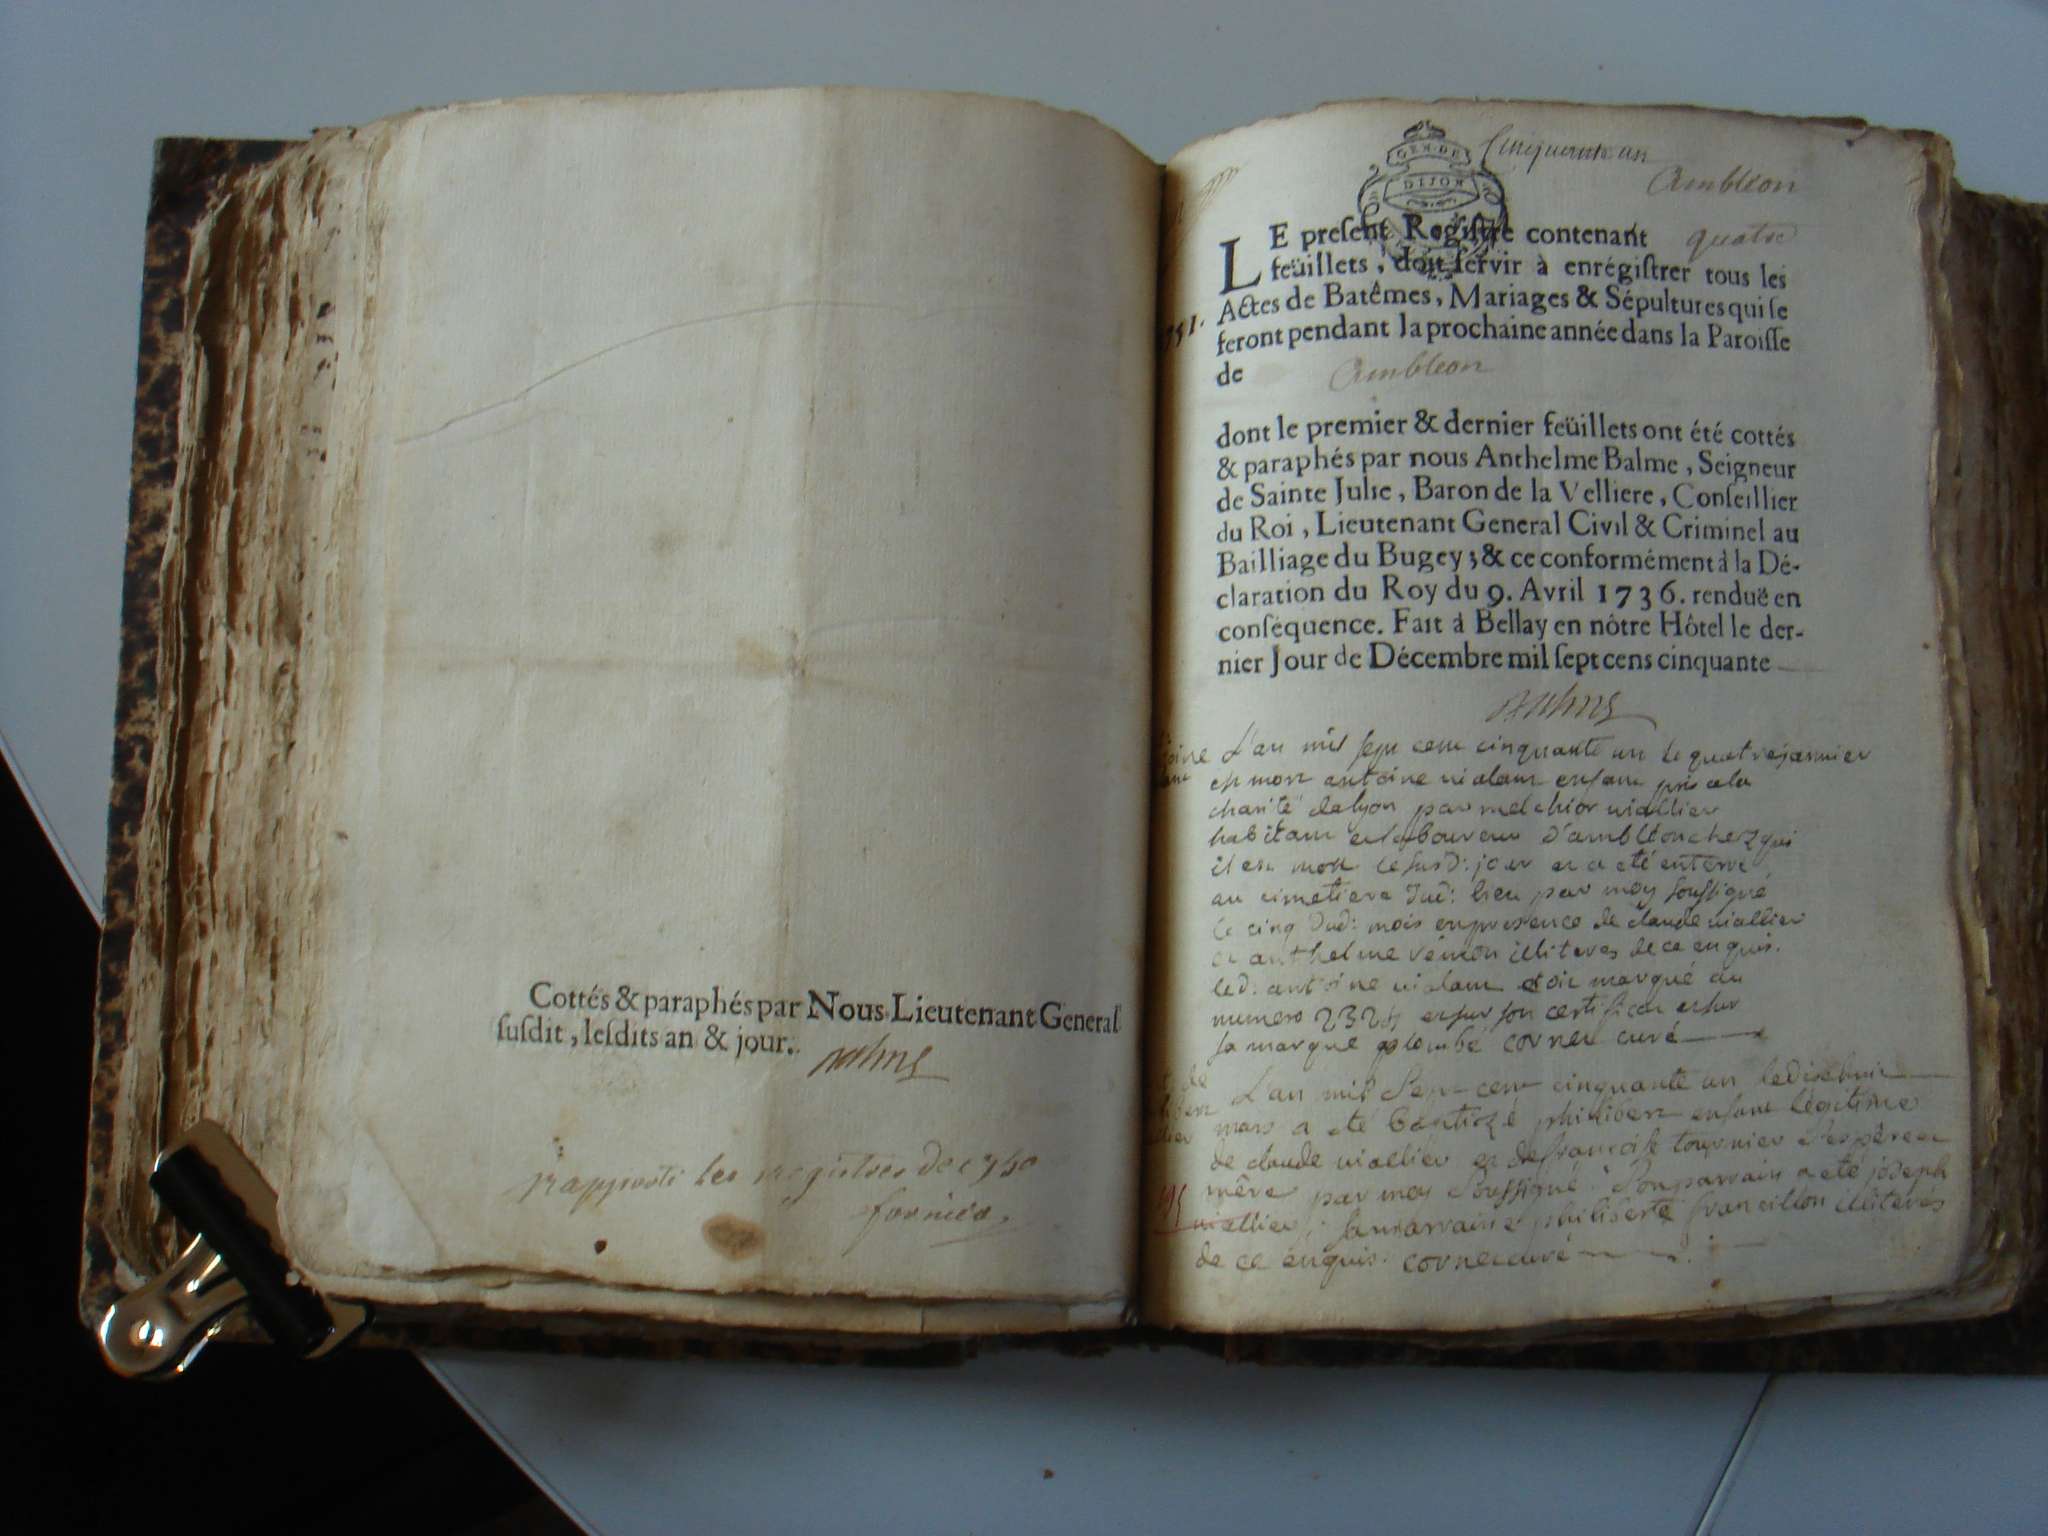 Cottés & paraphés par Nous Lieutenant General
susdit, lesdits an & jour.
rapporté les registres de 1750
GEN. DE
DIJON
Cinquante un
Ambléon
LE present Registre contenant quatre
feüillets, doit servir à enrégistrer tous les
Actes de Batêmes, Mariages & Sépultures qui se
feront pendant la prochaine année dans la Paroisse
de Ambleon
1751.
dont le premier & dernier feüillets ont été cottés
& paraphés par nous Anthelme Balme, Seigneur
de Sainte Julie, Baron de la Velliere, Conseillier
du Roi, Lieutenant General Civil & Criminel au
Bailliage du Bugey; & ce conformément à la Dé-
claration du Roy du 9. Avril 1736. renduë en
conséquence. Fait à Bellay en nôtre Hôtel le der-
nier Jour de Décembre mil sept cens cinquante
L'an mil sept cent cinquante un le quatre janvier
est mort antoine vialam enfant pris a la
charité de lyon par melchior viallier
habitant et laboureur d'ambléon chez qui
il est mort le susd: jour et a eté enterré
au cimetiere dud: lieu par moy soussigné
le cinq dud: mois en presence de claude viallier
et anthelme illiteres de ce enquis.
led: antoine vialam etoit marqué du
numero et sur son certificat et sur
sa marque plombé cornet curé
L'an mil sept cent cinquante un le dixehuit
mars a eté baptizé philibert enfant légitime
de claude viallier et de françoise tournier ses père et
mère par moy soussigné. son parrain a eté joseph
viallier; sa marraine philiberte francillon illiteres
de ce enquis. cornet curé